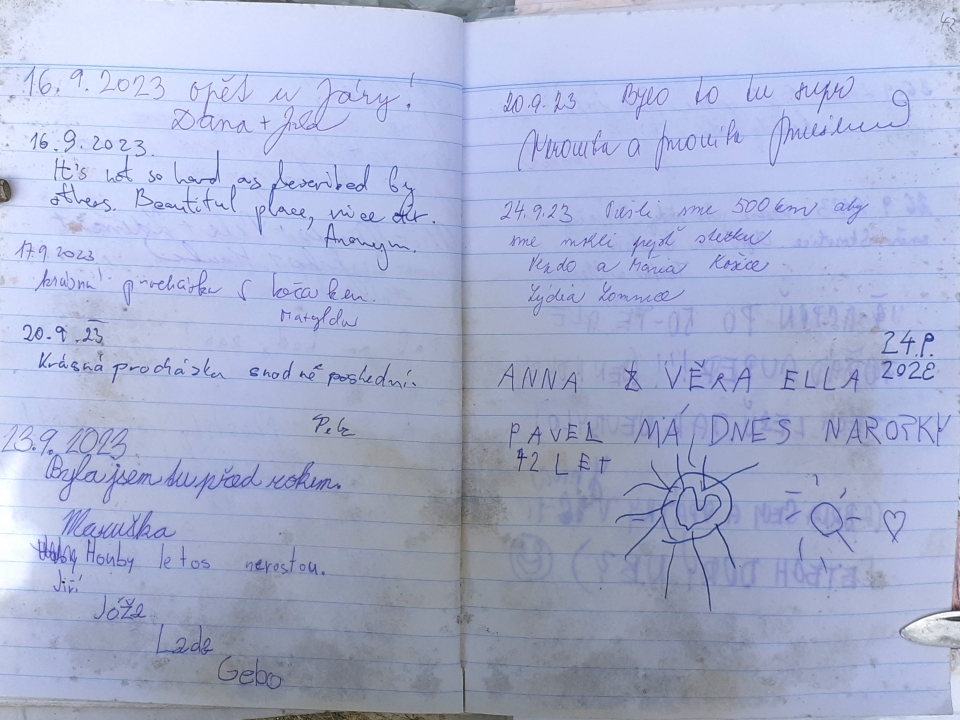 16.9.2023 opět u Járy!
Dana +
16.9.2023.
It's not so hard as described by
others. Beautiful place, nice
Anonym.
17.9.2023
procházka s kočárkem.
Matylda
20.9.23
Krásná procházka snad ne poslední.
Petr
23.9.2023.
Byla jsem tu před rokem.
Maruška
Houby letos nerostou.
Jiří
Jóža
Lada
Gebo
42
20.9.23 Bylo to tu supr
a
24.9.23 sme 500km aby
sme mohli přejít stezku
a Mária Košice
Lýdia Lomnice
24.9.
2023
ANNA Z VĚRA ELLA
PAVEL MÁ DNES NAROZKY
42 LET